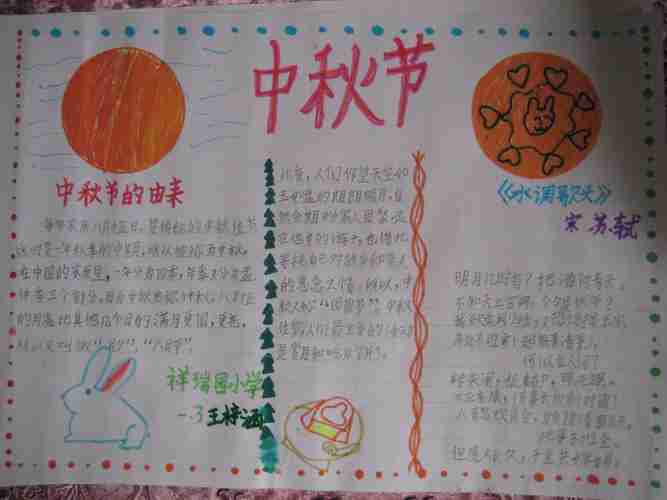 中秋节
中秋节的由来
每年农历八月十五日,是传统的中秋佳节
这时是一年秋季的中期,所以被称为中秋,
在中国的农历里,一年分为四季,每季又分为孟
仲季三个部分,因而中秋也称仲秋。八月十五
的月亮比其他几个月的满月更圆,更亮,
所以又叫做“月夕”,“八月节”。
祥瑞园小学
一.3 王梓涵
此夜,人们仰望天空如
玉如盘的朗朗明月,自
然会期盼家人团聚.远
在他乡的游子,也借此
寄托自己对故乡和亲人
的思念之情。所以,中
秋又称“团圆节”。中秋
佳节人们最主要的活动
是赏月和吃月饼。
《水调歌头》
宋 苏轼
明月几时有?把酒问青天。
不知天上宫阙,今夕是何年?
何似在人间?
转朱阁,低绮户,照无眠。
不应有恨,何事长向别时圆?
此事古难全。
但愿人长久,千里共婵娟。